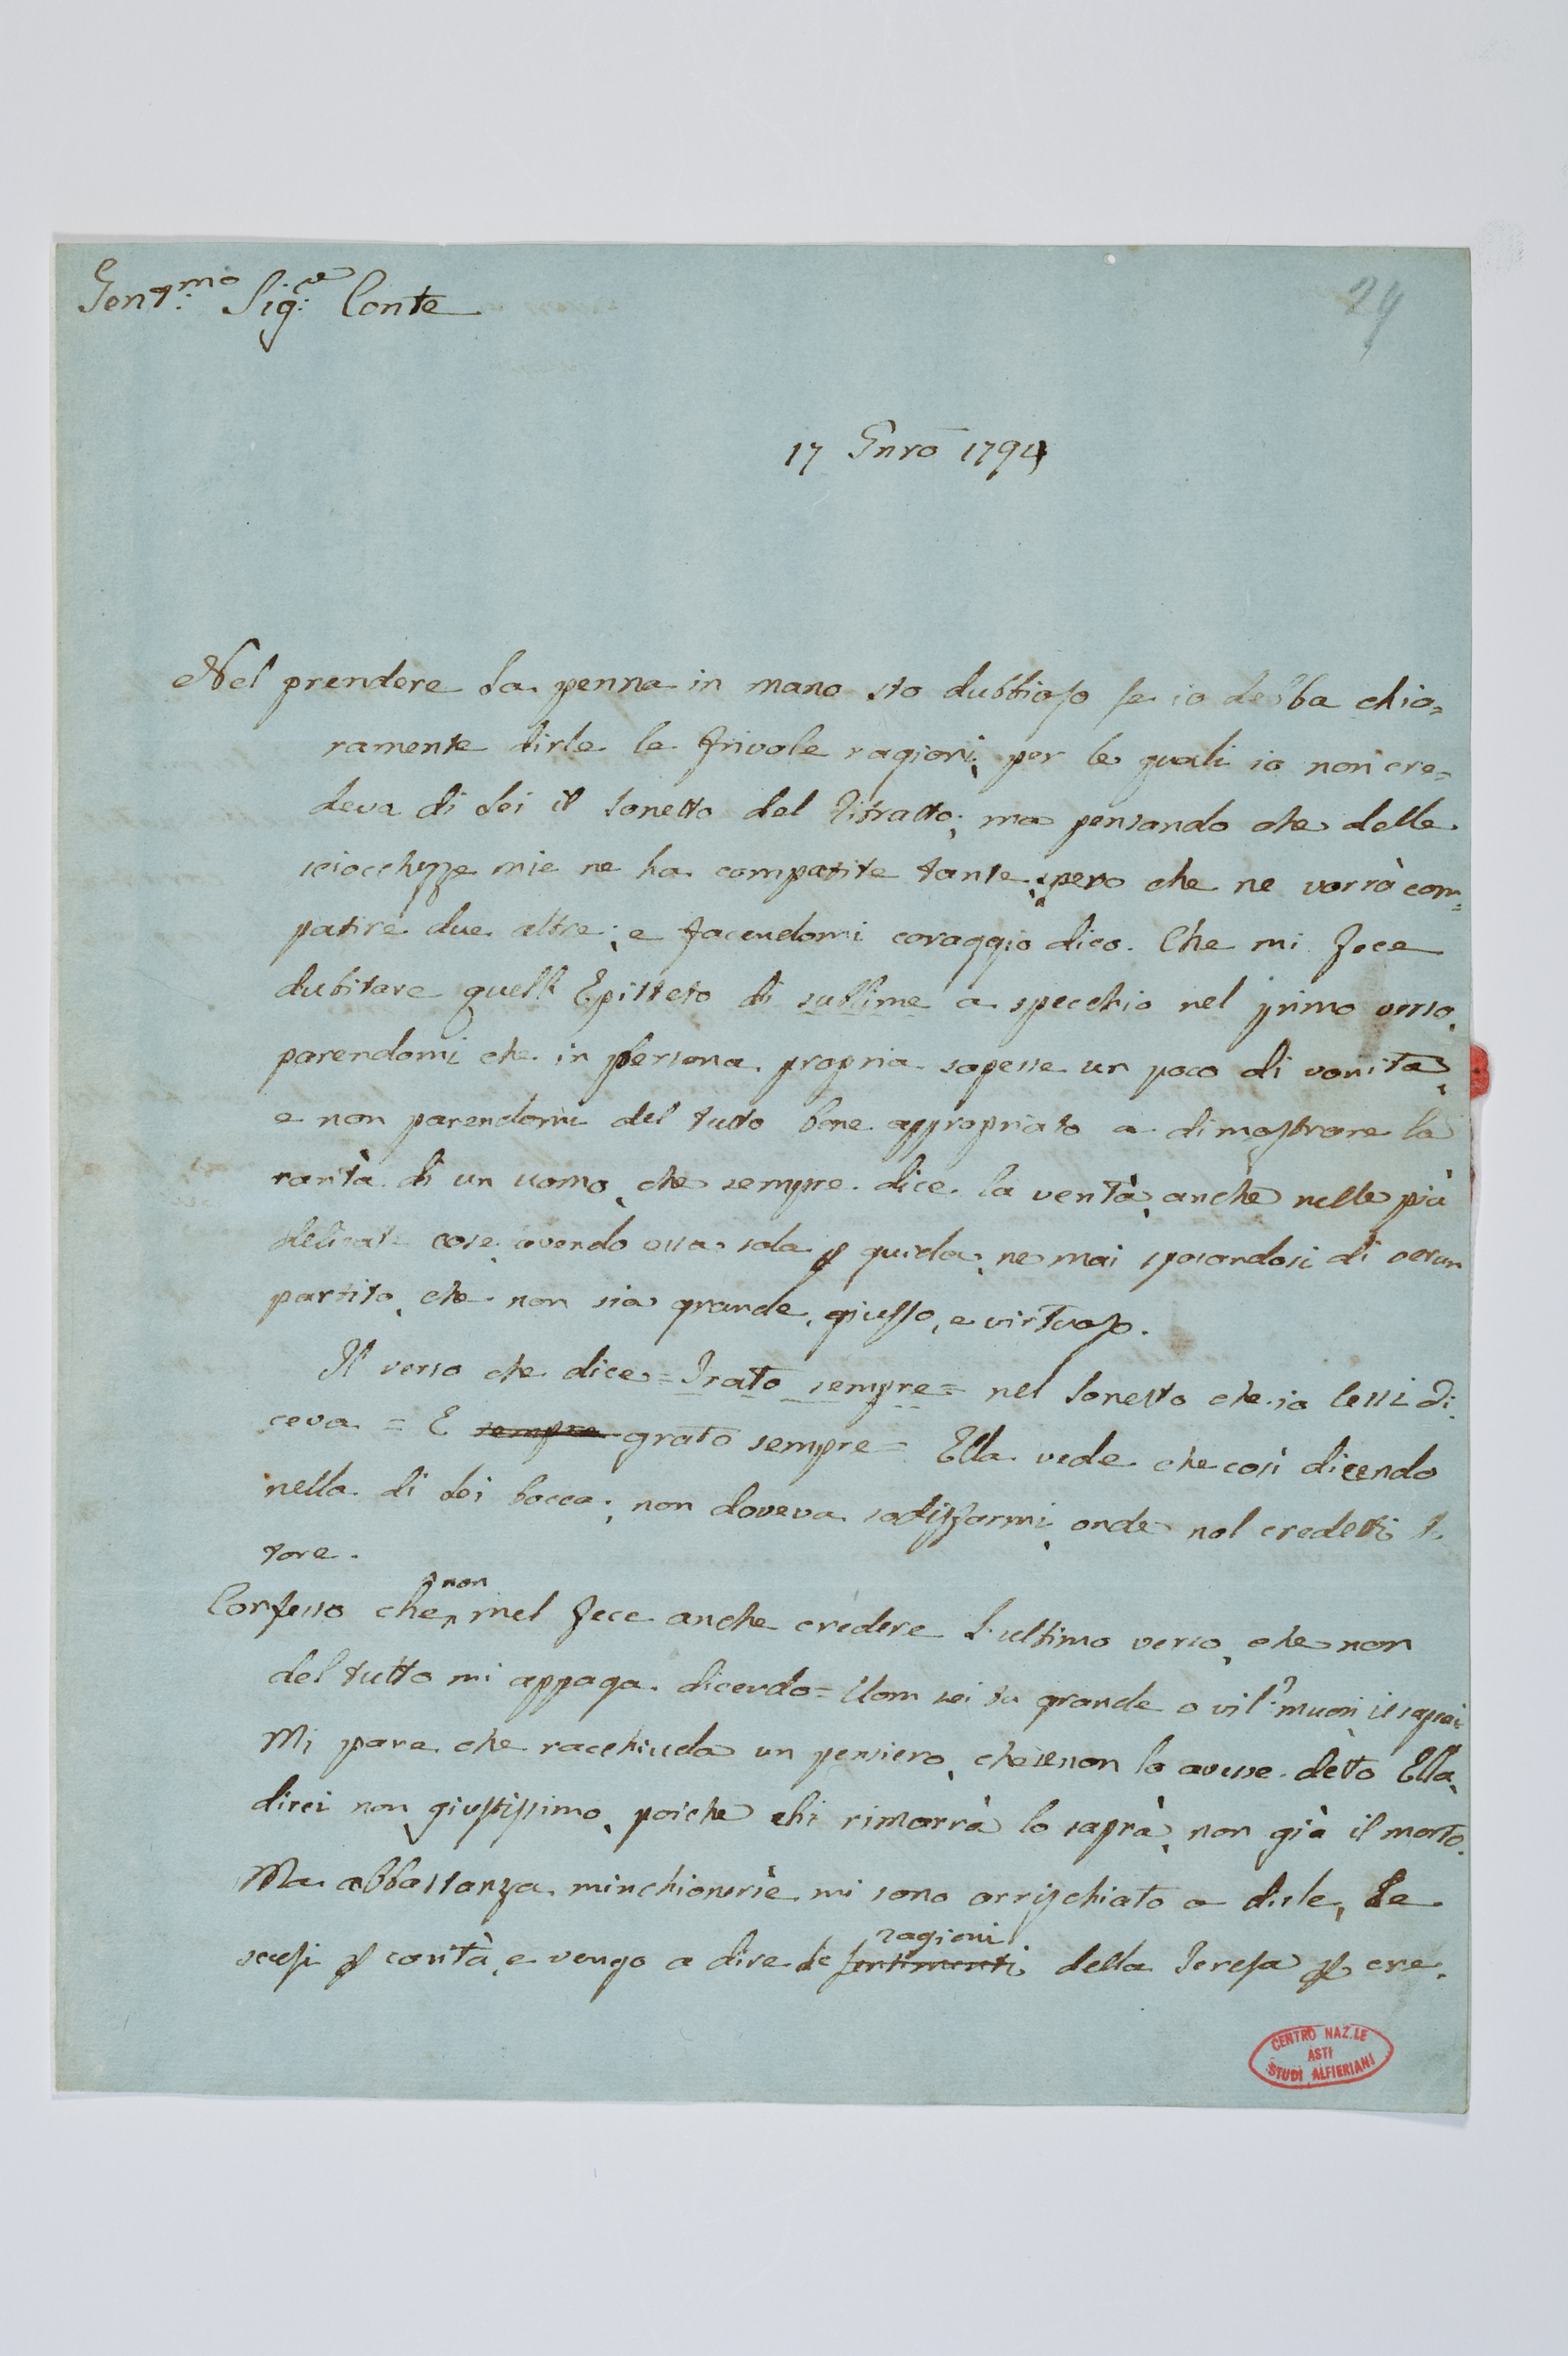 Gent.mo Sig.e Conte
29
17 Gnro 1794
Nel prendere la penna in mano sto dubbioso se io debba chia=
ramente dirle le frivole ragioni, per le quali io non cre=
deva di Lei il Sonetto del Ritratto; ma pensando che delle
sciocchezze mie ne ha compatite tante, spero che ne vorrà com=
patire due altre; e facendomi coraggio dico. Che mi fece
dubitare quell' Epitteto di sublime a specchio nel primo verso,
parendomi che in persona propria sapesse un poco di vanità,
e non parendomi del tutto bene appropriato a dimostrare la
rarità di un uomo, che sempre dice la verità, anche nelle più
delicate cose, avendo essa sola p guida, ne mai sposandosi di verun
partito, che non sia grande, giusto, e virtuoso.
Il verso che dice = Irato sempre = nel Sonetto che io lessi di=
ceva = E sempre grato sempre = Ella vede che così dicendo
nella di Lei bocca, non doveva sodisfarmi, onde nol credetti
tore.
Confesso che non mel fece anche credere l'ultimo verso, che non
del tutto mi appaga dicendo = Uom sei tu grande o vil? muori, il saprai
Mi pare che racchiuda un pensiero, che se non lo avesse detto Ella,
direi non giustissimo, poiche chi rimarrà lo saprà, non già il morto.
Ma abbastanza minchionerie mi sono arrischiato a dirle, Le
scusi p carità, e vengo a dire le sentimenti ragioni della Teresa p cre=
CENTRO NAZ.LE
ASTI
STUDI ALFIERIANI